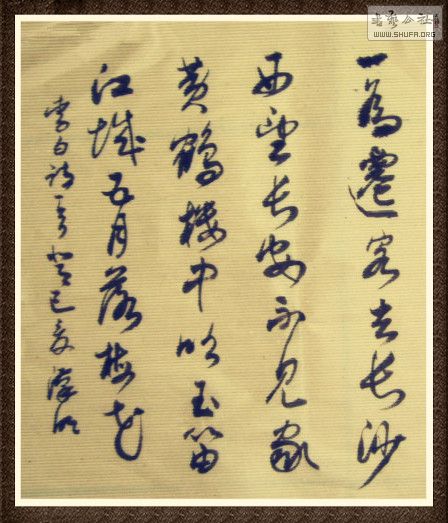 书艺公社
WWW.SHUFA.ORG
一為遷客去长沙
西望长安不见家
黄鹤楼中吹玉笛
江城五月落梅花
李白诗一首癸巳夏